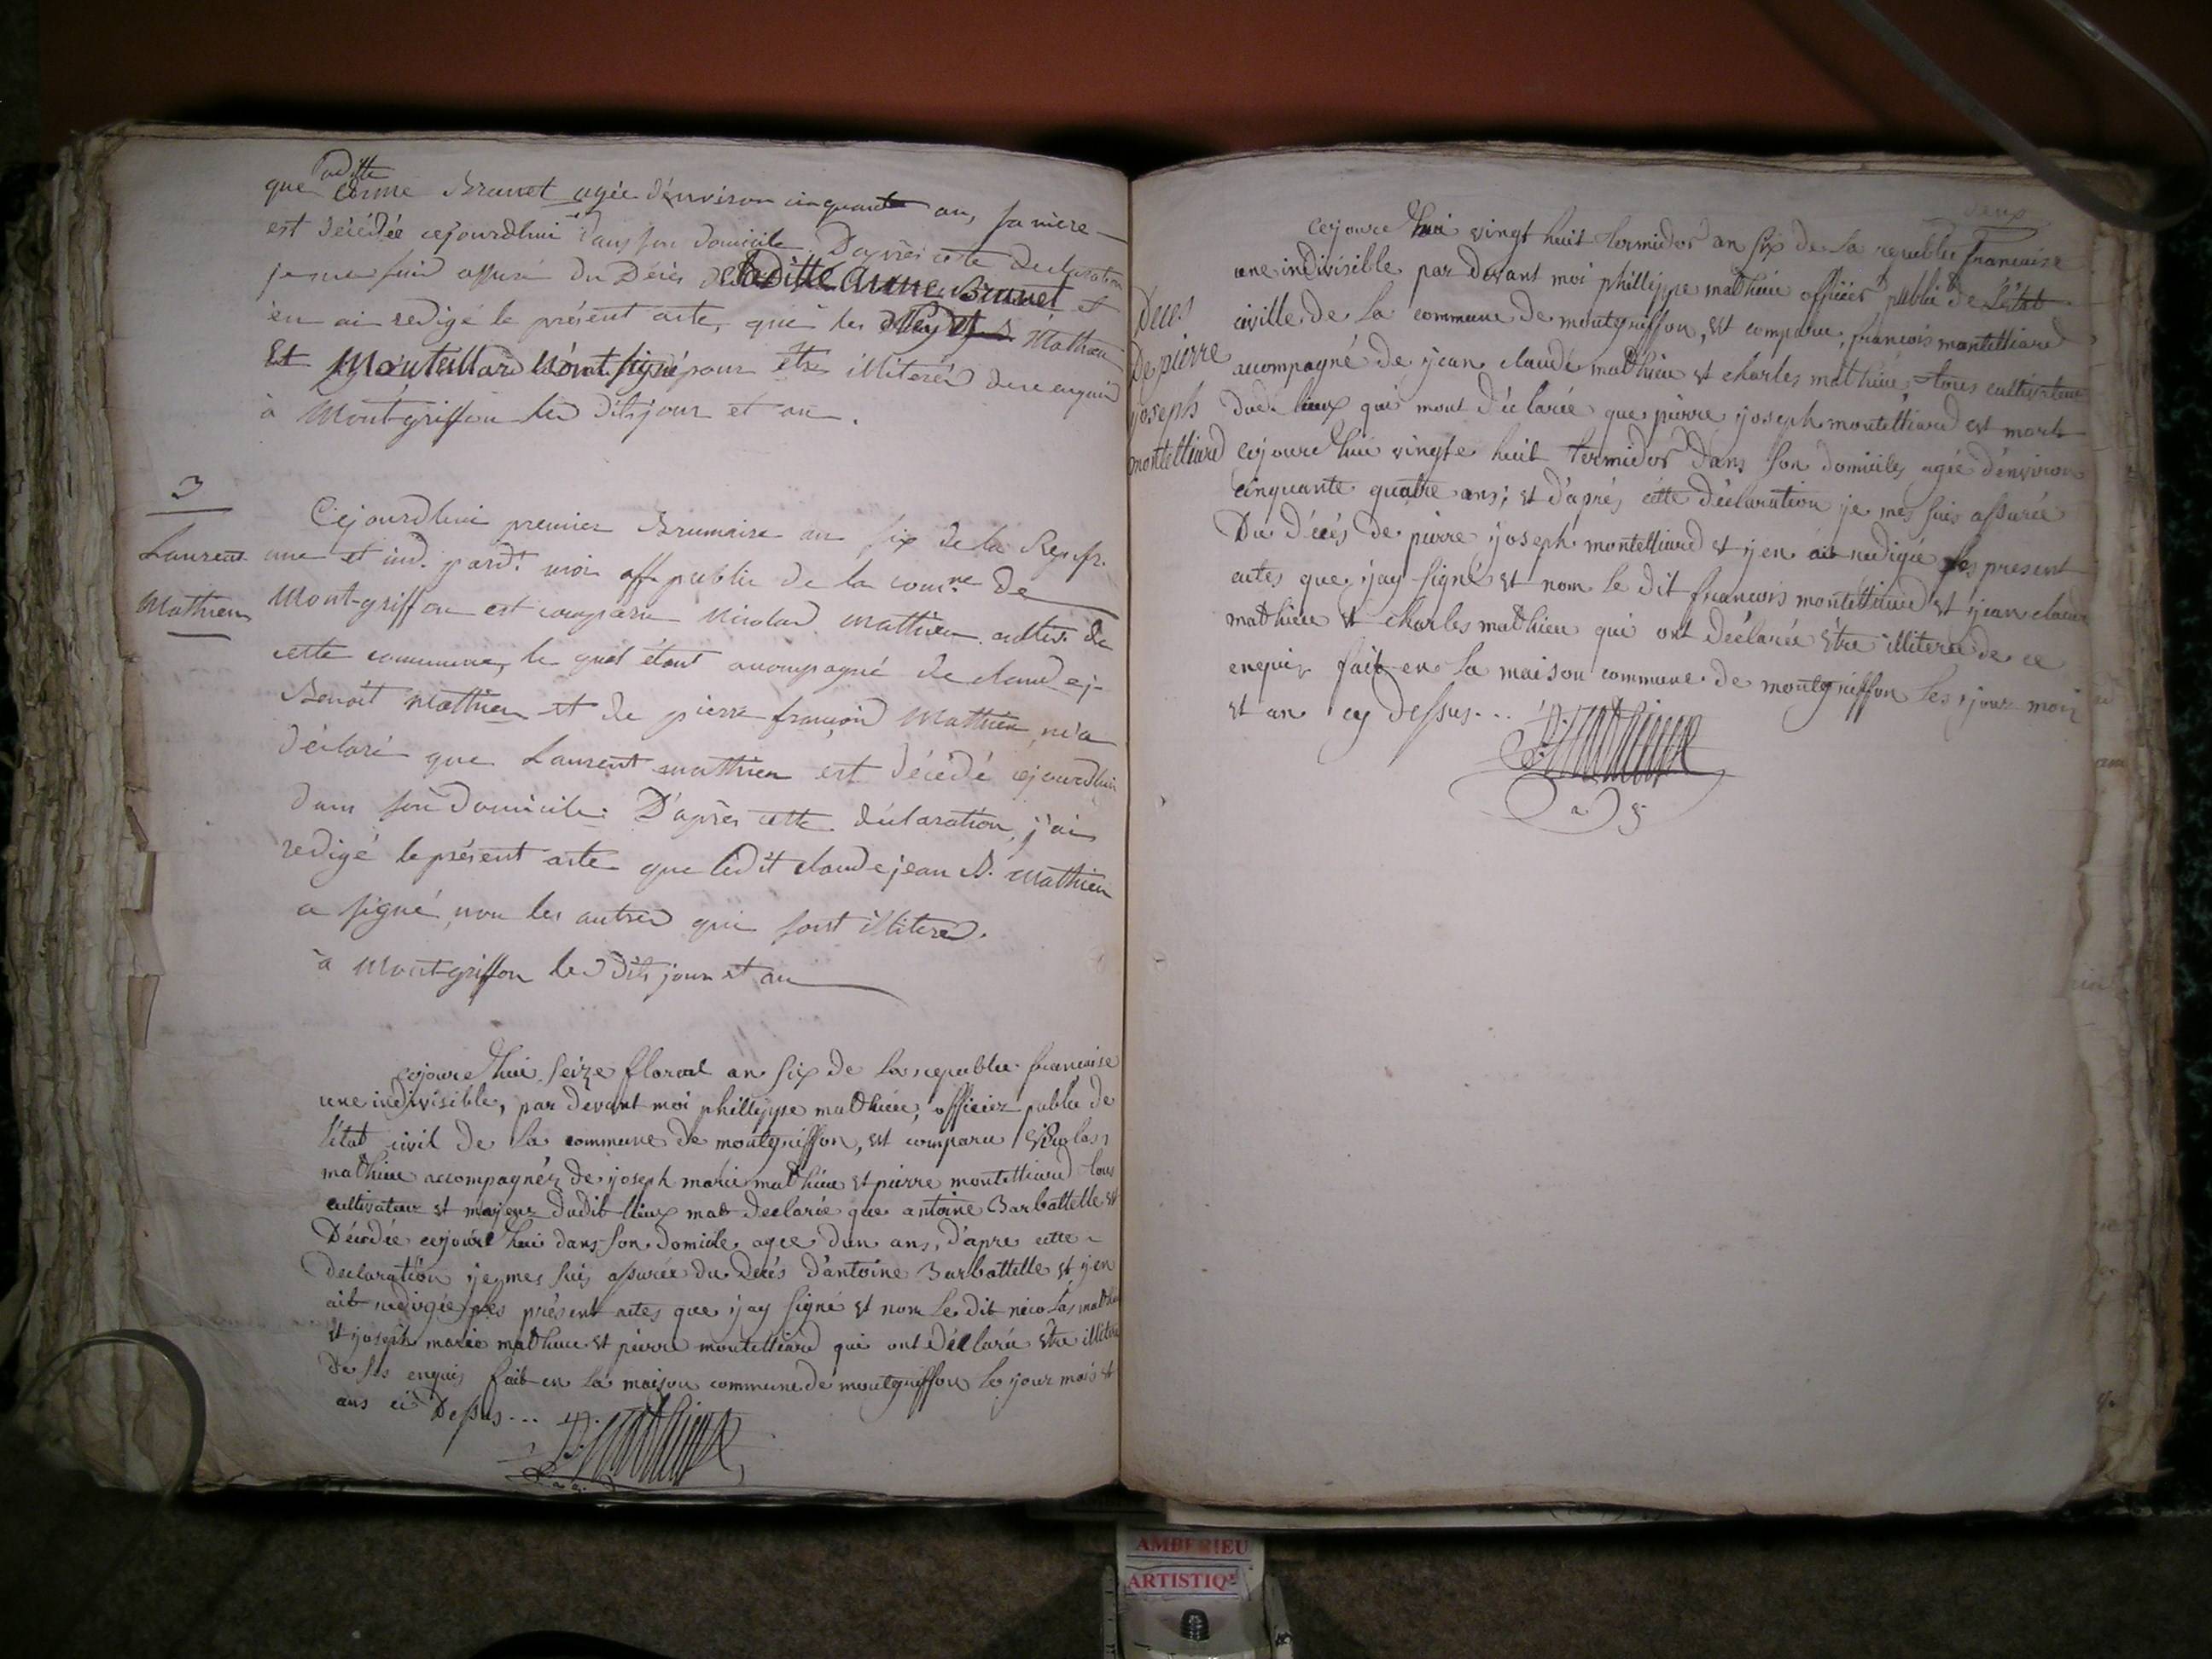 que laditte Brunet agée d'environ cinquante ans, sa mere
est décédée cejourdhui dans son domicile. D'après cette declaration
je me suis assuré du Décès de laditte Anne Brunet et
en ai redigé le présent acte, que les Mathieu
et Montillard n'ont signé pour être illiterés de ce enquis
à Montgriffon les dits jour et an.
3
Laurent
Mathieu
Cejourdhui premier Brumaire an six de la Rep. fr.
une et ind. pardt. moi off. public de la comne. de
Mont-griffon est comparu Nicolas Mathieu cultiv. de
cette commune, le quel étant accompagné de claude j.
Benoit Mathieu et de pierre françois Mathieu, m'a
déclaré que Laurent mathieu est décédé cejourdhui
dans son Domicile. D'après cette déclaration, j'ai
redigé le présent acte que ledit claude jean B. Mathieu
a signé, non les autres qui sont illiterés.
à Montgriffon les dits jour et an
cejoure Thui seize floreal an six de la republec francaise
une indivisible, par devant moi phillippe mathieu, officier public de
l'état civil de la commune de montgriffon, est comparu nicolas
mathieu accompagnéz de joseph marie mathieu et pierre montelliard tous
cultivateur et majeur dudit lieux mat declarée que antoine Barbattelle est
Décédée cejoure hui dans son domicile agee dun ans, d'apre cette
declaration je mes suis assurée du decés d'antoine Barbattelle et jen
ait redigée les présent actes que jay signé et nom le dit nicolas mathieu
et joseph marie mathieu et pierre montelliard qui ont déclarée être illiteré
de ses enquis fait en la maison commune de montgriffon le jour mois et
ans ci Dessus...
P. Mathieu
deux
Deces
De pierre
joseph
montelliard
cejoure Thui vingt huit termidor an six de la republec francaise
une indivisible par devant moi phillippe mathieu officier public de l'état
civille de la commune de montgriffon, est comparu, francois montelliard
accompagné de jean claude mathieu et charles mathieu, tous cultivateur
dud. lieux qui mont déclarée que pierre joseph montelliard est mort
cejoure Thui vingte huit termidor dans son domiciles agée d'environ
cinquante quatre ans; et d'aprés cette déclaration je mes suis assurée
Du décés de pierre joseph montelliard et jen ait redigée les present
actes que jay signé et nom le dit francois montelliard et jean claude
mathieu et charles mathieu qui ont déclarée être illiteré de ce
enquis fait en la maison commune de montgriffon les jour mois
et an cy dessus...
P. Mathieu
AMBERIEU
ARTISTIQ